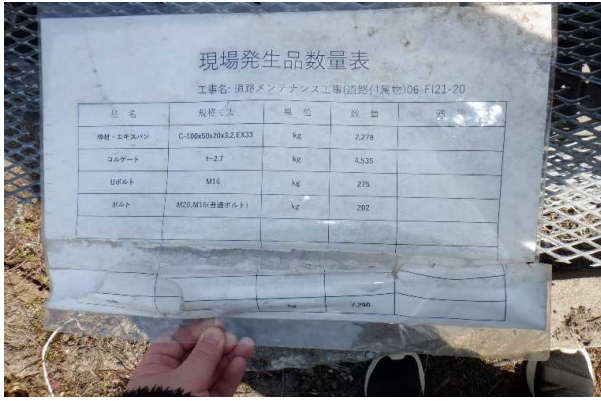 現場発生品数量表
工事名: 道路メンテナンス工事(道路付属物)06-FI21-20
品名 規格寸法 単位 数量 適用
枠材・エキスパン C-100x50x20x3.2,EX33 kg 2,278
コルゲート t=2.7 kg 4,535
Uボルト M16 kg 275
ボルト M20,M16(普通ボルト) kg 202
kg 7,290